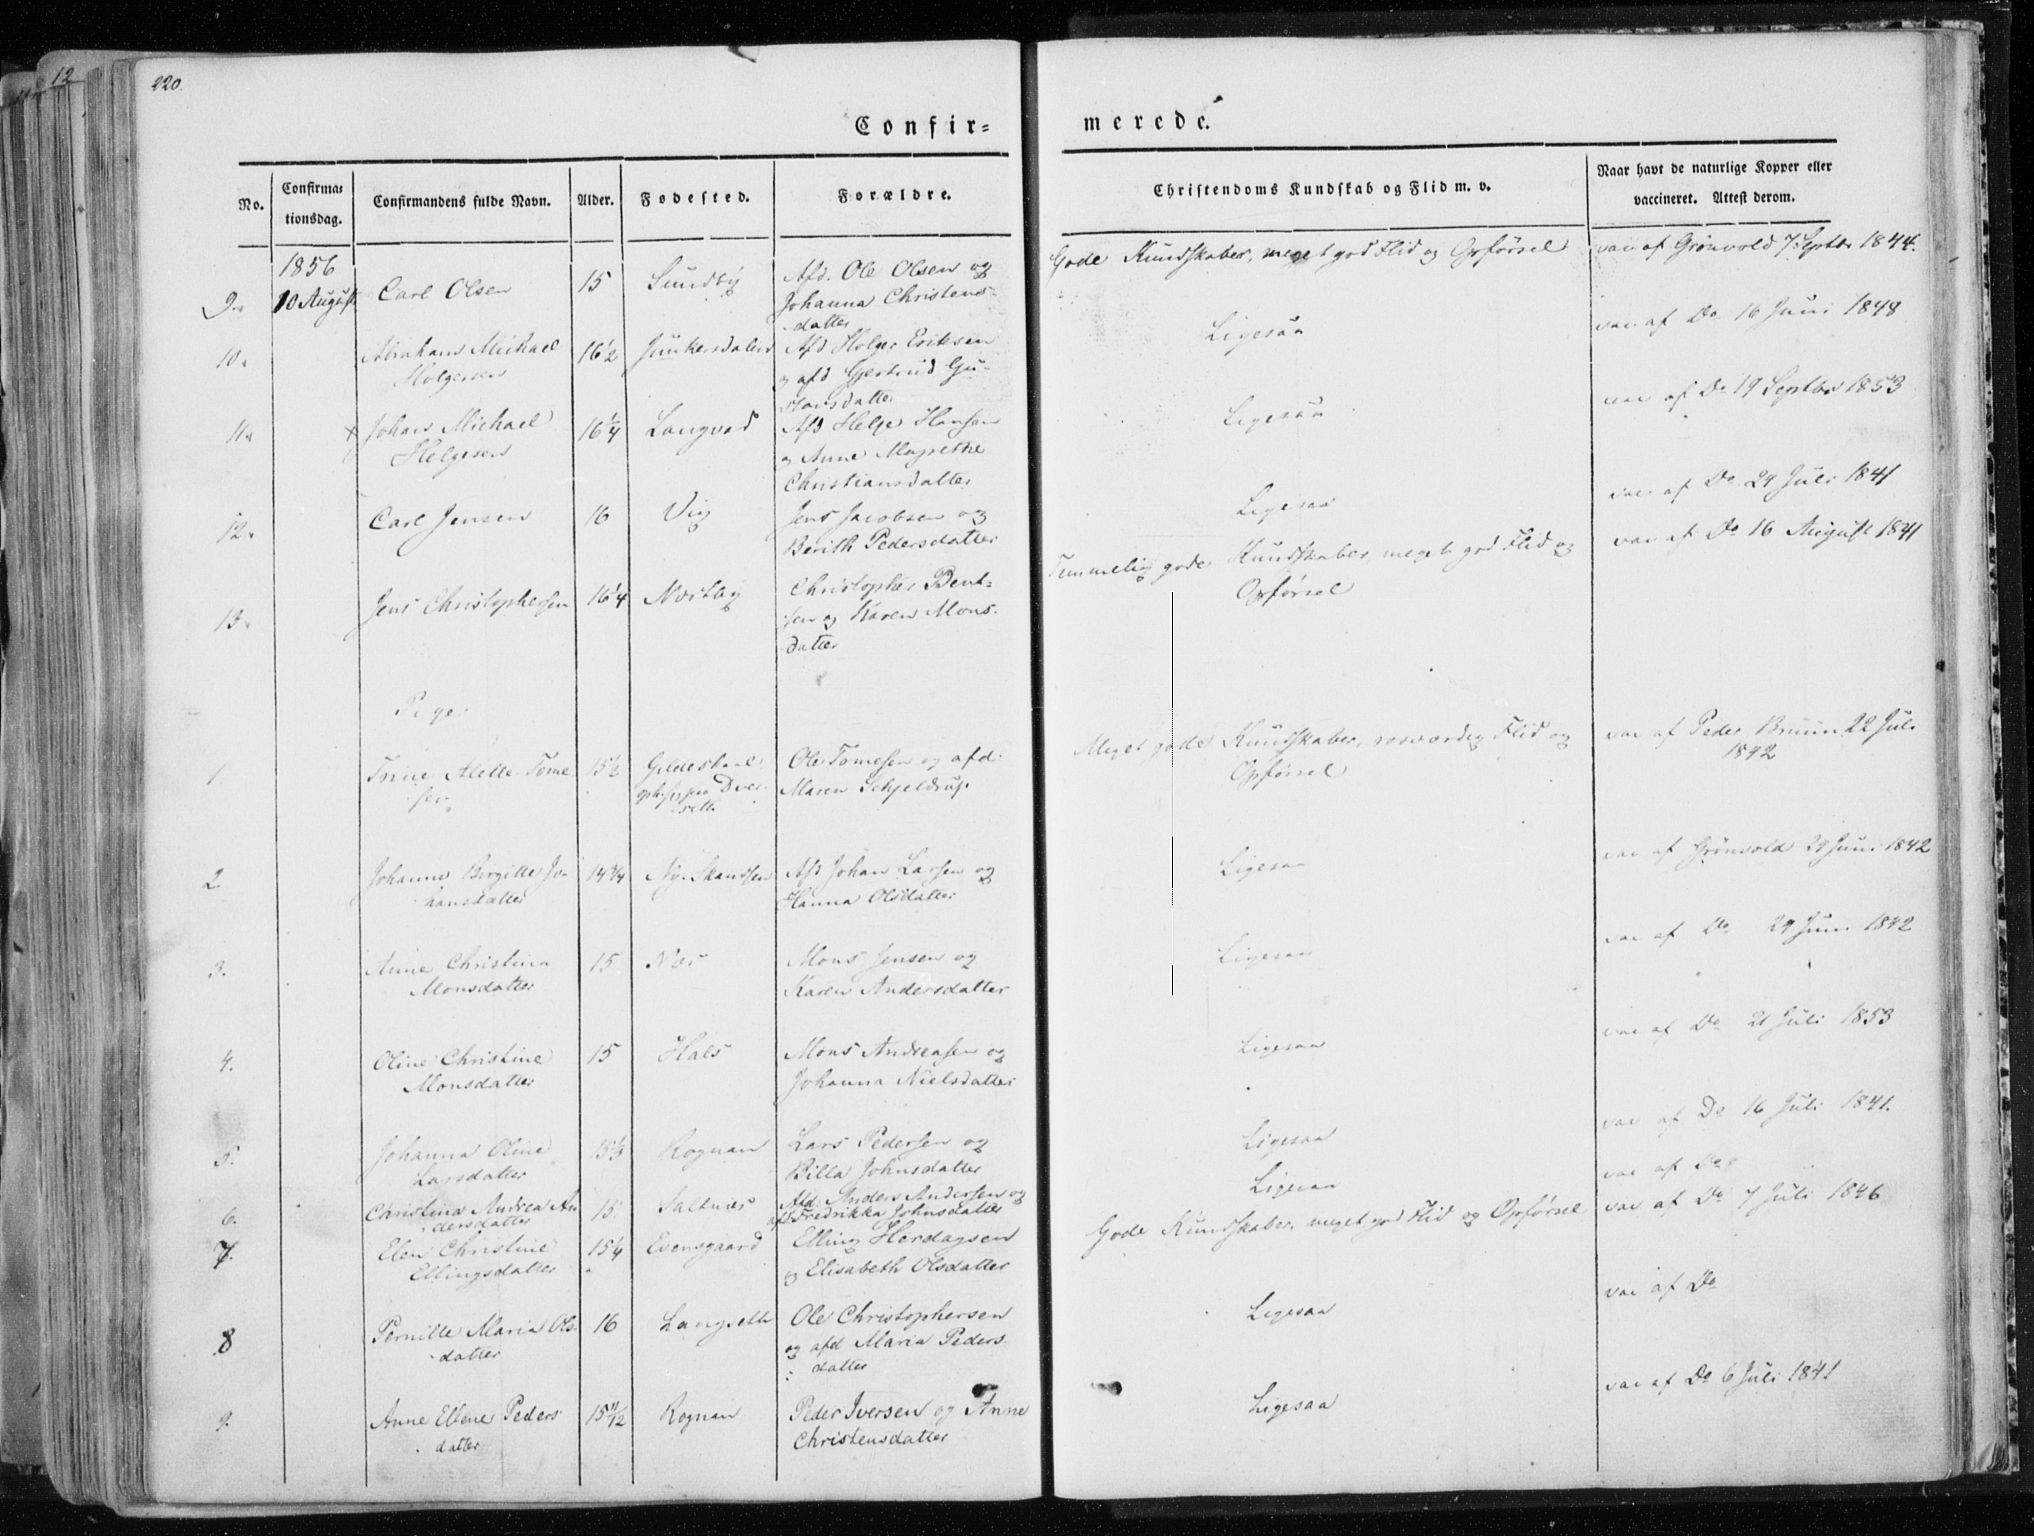 12
220.
Confir=
merede.
No.
Confirma=
tionsdag.
Confirmandens fulde Navn.
Alder.
Fødested.
Forældre.
Christendoms Kundskab og Flid m. v.
Naar havt de naturlige Kopper eller
vaccineret. Attest derom.
1856
9. 10 August Carl Olsen 15 Sundby Afd. Ole Olsen og
Johanna Christens-
datter
Gode Kundskaber, meget god Flid og Opførsel
vac af Grønvold 7 Septbr 1844.
10. Abraham Michael 16½ Junkersdalen Afd Holger Eriksen
Holgersen og afd Gjertrud Gu-
stavsdatter
Ligesaa
vac af Do 16 Juni 1848
11. x Johan Michael 16¼ Langvad Afd Helge Hansen
Helgesen og Anne Magrethe
Christiansdatter
Ligesaa
vac af Do 19 Septbr 1853
12. Carl Jensen 16 Vig Jens Jacobsen og
Berith Pedersdatter
Ligesaa
vac af Do 24 Juli 1841
13. Jens Christophersen 16¼ Nestby Christopher Bent-
sen og Karen Mons-
datter
Temmelig gode Kundskaber, meget god Flid og
Opførsel
vac af Do 16 August 1841
Piger
1. Trine Alette Tome 15½ Gildeskaal Ole Tomesen og afd.
sen Maren Schjeldrup
Meget gode Kundskaber, rosværdig Flid og
Opførsel
vac af Peder Bruun 22 Juli
1842
2. Johanne Birgitte Jo- 14¾ Ny-Skandsen Afd Johan Larsen og
hansdatter Hanna Olsdatter
Ligesaa
vac af Grønvold 29 Juni 1842
3. Anne Christina 15 Næs Mons Jensen og
Monsdatter Karen Andersdatter
Ligesaa
vac af Do 29 Juni 1842
4. Oline Christine 15 Hals Mons Andreasen og
Monsdatter Johanna Nielsdatter
Ligesaa
vac af Do 21 Juli 1853
5. Johanna Oline 15⅓ Rognan Lars Pedersen og
Larsdatter Billa Johnsdatter
Ligesaa
vac af Do 16 Juli 1841.
6. Christina Andrea An 15 Saltnes Afd. Anders Andersen og
dersdatter afd Fredrikka Johnsdatter
Ligesaa
vac af Do
7. Elen Christine 15¼ Evensgaard Elling Herdagsen
Ellingsdatter og Elisabeth Olsdatter
Gode Kundskaber, meget god Flid og Opførsel
vac af Do 7 Juli 1846
8 Pernille Maria Ols- 16 Langsetle Ole Christophersen
datter og afd Maria Peders-
datter
Ligesaa
vac af Do
9. Anne Ellene Peders 15 11/12 Rognan Peder Iversen og Anne
datter Christensdatter
Ligesaa
vac af Do 6 Juli 1841